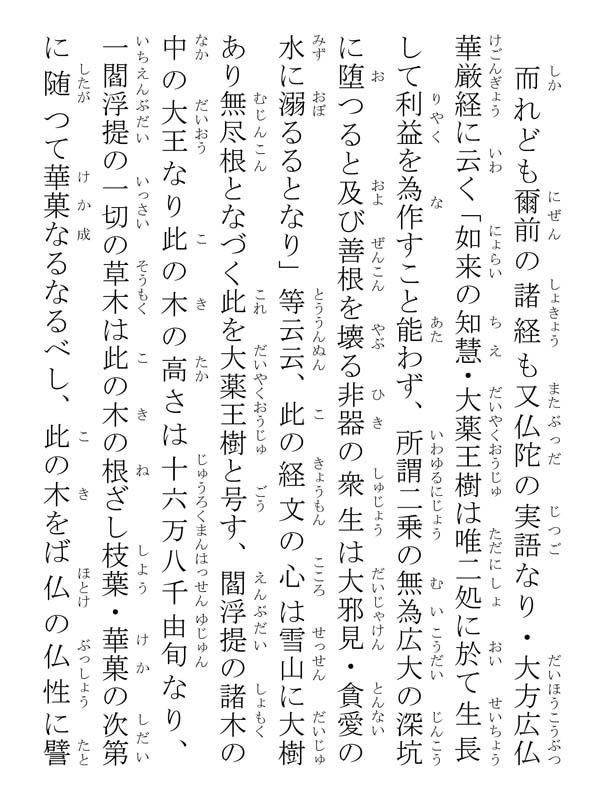 而れども爾前の諸経も又仏陀の実語なり・大方広仏
華厳経に云く「如来の知慧・大薬王樹は唯二処に於て生長
して利益を為作すこと能わず、所謂二乗の無為広大の深坑
に堕つると及び善根を壊る非器の衆生は大邪見・貪愛の
水に溺るるとなり」等云云、此の経文の心は雪山に大樹
あり無尽根となづく此を大薬王樹と号す、閻浮提の諸木の
中の大王なり此の木の高さは十六万八千由旬なり、
一閻浮提の一切の草木は此の木の根ざし枝葉・華菓の次第
に随つて華菓なるなるべし、此の木をば仏の仏性に譬